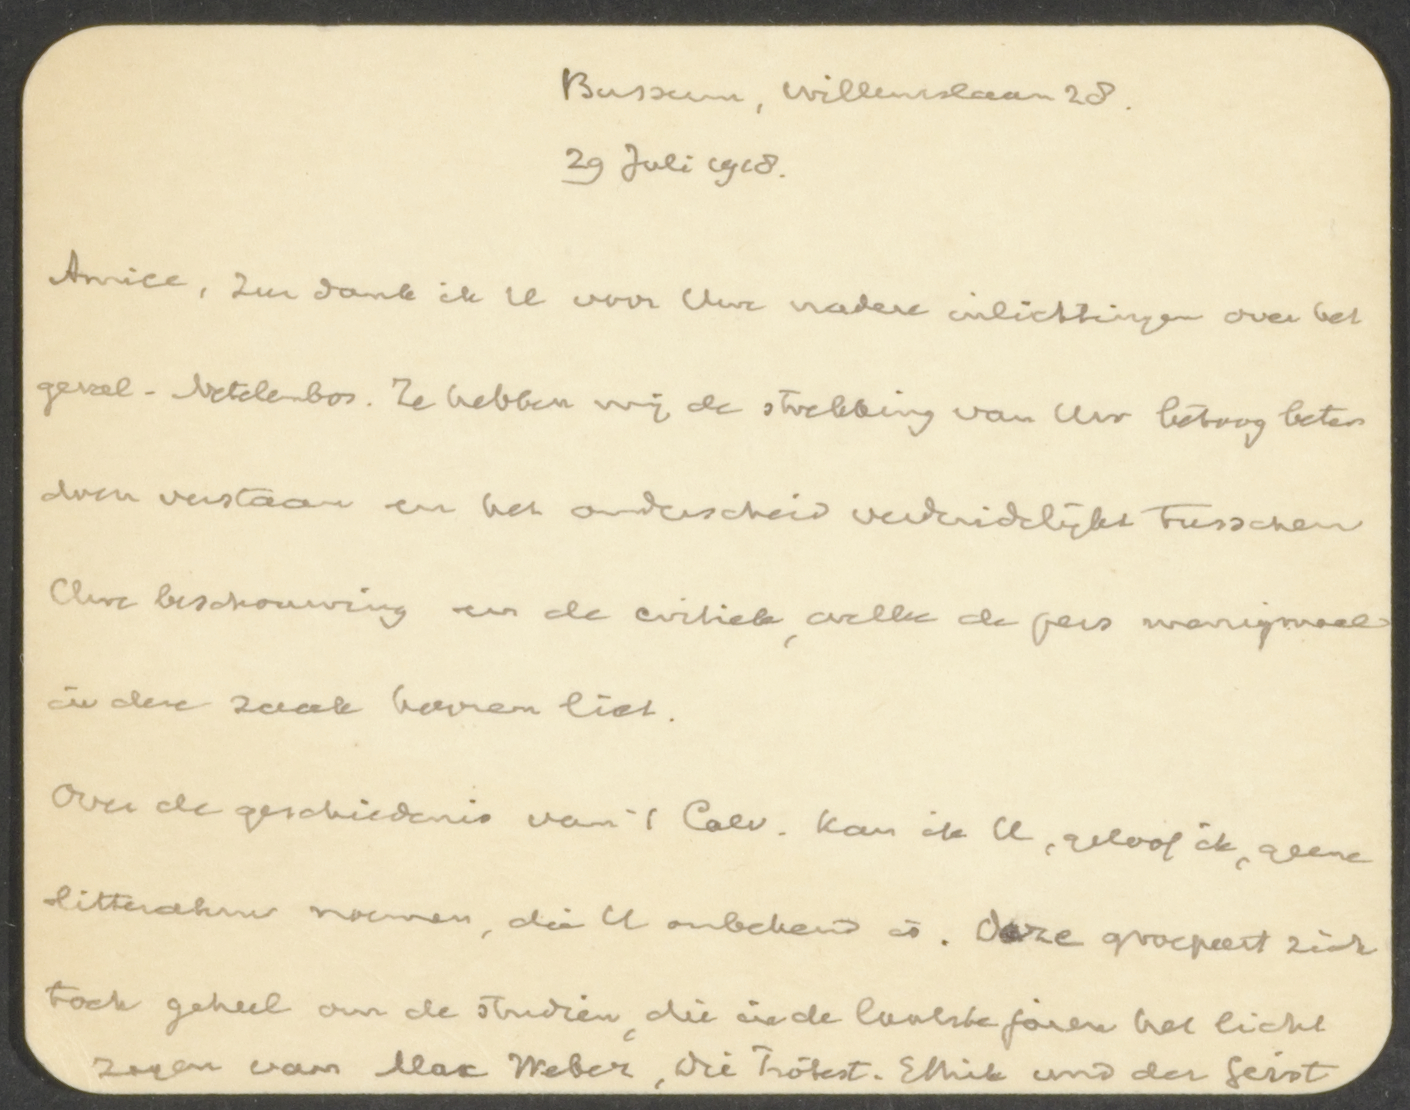 Bussum, Willemslaan 28.
29 Juli 1918.
Amice, zeer dank ik U voor Uwe nadere inlichtingen over het
geval-Netelenbos. Ze hebben mij de strekking van Uw betoog beter
doen verstaan en het onderscheid verduidelijkt tusschen
Uwe beschouwing en de critiek, welke de pers menigmaal
in deze zaak hooren liet.
Over de geschiedenis van 't Calv. kan ik U, geloof ik, geene
litteratuur noemen, die U onbekend is. Deze groepeert zich
toch geheel om de studiën, die in de laatste jaren het licht
zagen van Max Weber, Die Protest. Ethik und der Geist